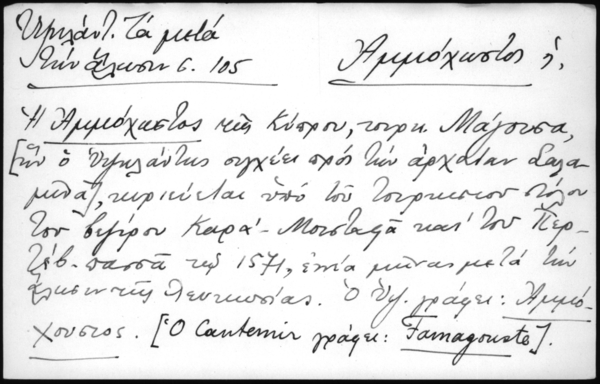 Ὑψηλάντ. Τά μετά
τήν ἅλωσιν σ. 105
Ἀμμόχωστος ἡ,
Ἡ Ἀμμόχωστος τῆς Κύπρου, τουρκ. Μάγουσα,
[ἥν ὁ Ὑψηλάντης συγχέει πρός τήν ἀρχαίαν Σαλα-
μῖνα], κυριεύεται ὑπό τοῦ τουρκικοῦ στόλου
τοῦ βεζίρου Καρά-Μουσταφᾶ καί τοῦ Περ-
τέβ-πασσᾶ τῷ 1571, ἐννέα μῆνας μετά τήν
ἅλωσιν τῆς Λευκωσίας. Ὁ Ὑψ. γράφει: Ἀμμό-
χουστος. [Ὁ Cantemir γράφει: Famagouste].